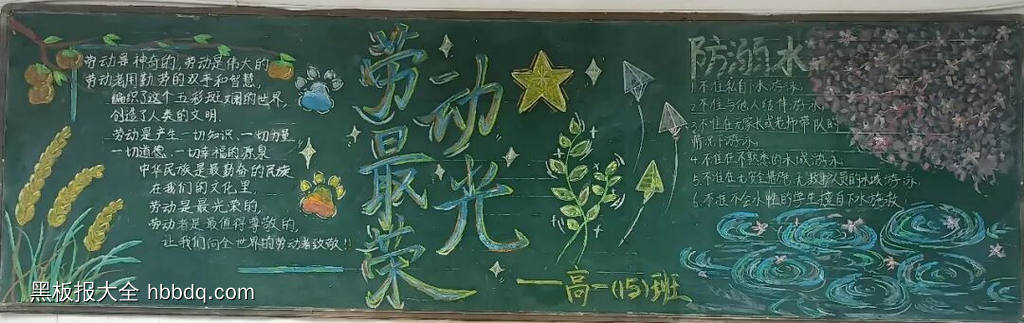 劳动是神奇的,劳动是伟大的
劳动者用勤劳的双手和智慧,
编织了这个五彩斑斓的世界,
创造了人类的文明.
劳动是产生一切知识、一切力量
一切道德、一切幸福的源泉
中华民族是最勤奋的民族
在我们的文化里,
劳动是最光荣的,
劳动者是最值得尊敬的,
让我们向全世界的劳动者致敬!!
劳动
最光
荣
——高一(15)班
防溺水
1.不准私自下水游泳.
2.不准与他人结伴游泳
3.不准在无家长或老师带队的
情况下游泳.
4.不准在不熟悉的水域游泳.
5.不准在无安全设施,无救护人员的水域游泳,
6.不准不会水性的学生擅自下水施救!
黑板报大全 hbbdq.com